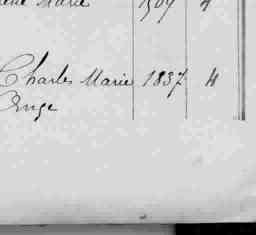 Marie 1909 4
Charles Marie 1837 4
Ange